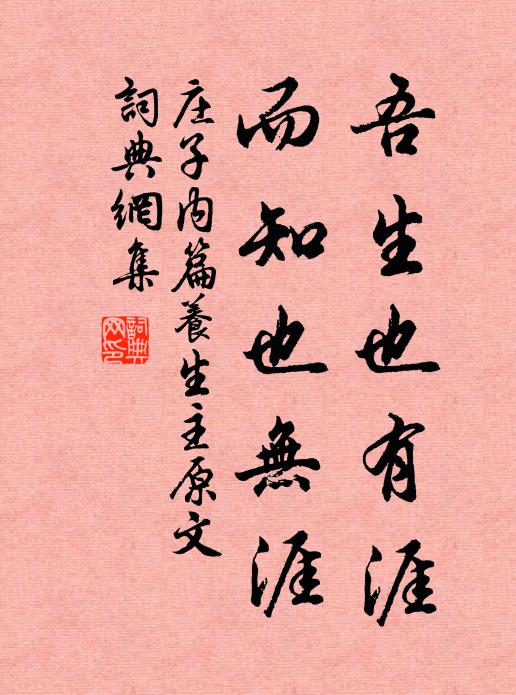 吾生也有涯
而知也無涯
庄子内篇養生主原文
詞典網集
詞典
网印